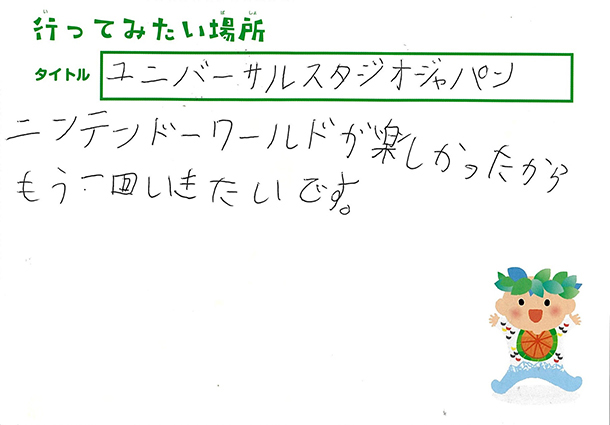 行ってみたい場所
タイトル ユニバーサルスタジオジャパン
ニンテンドーワールドが楽しかったから
もう一回いきたいです。